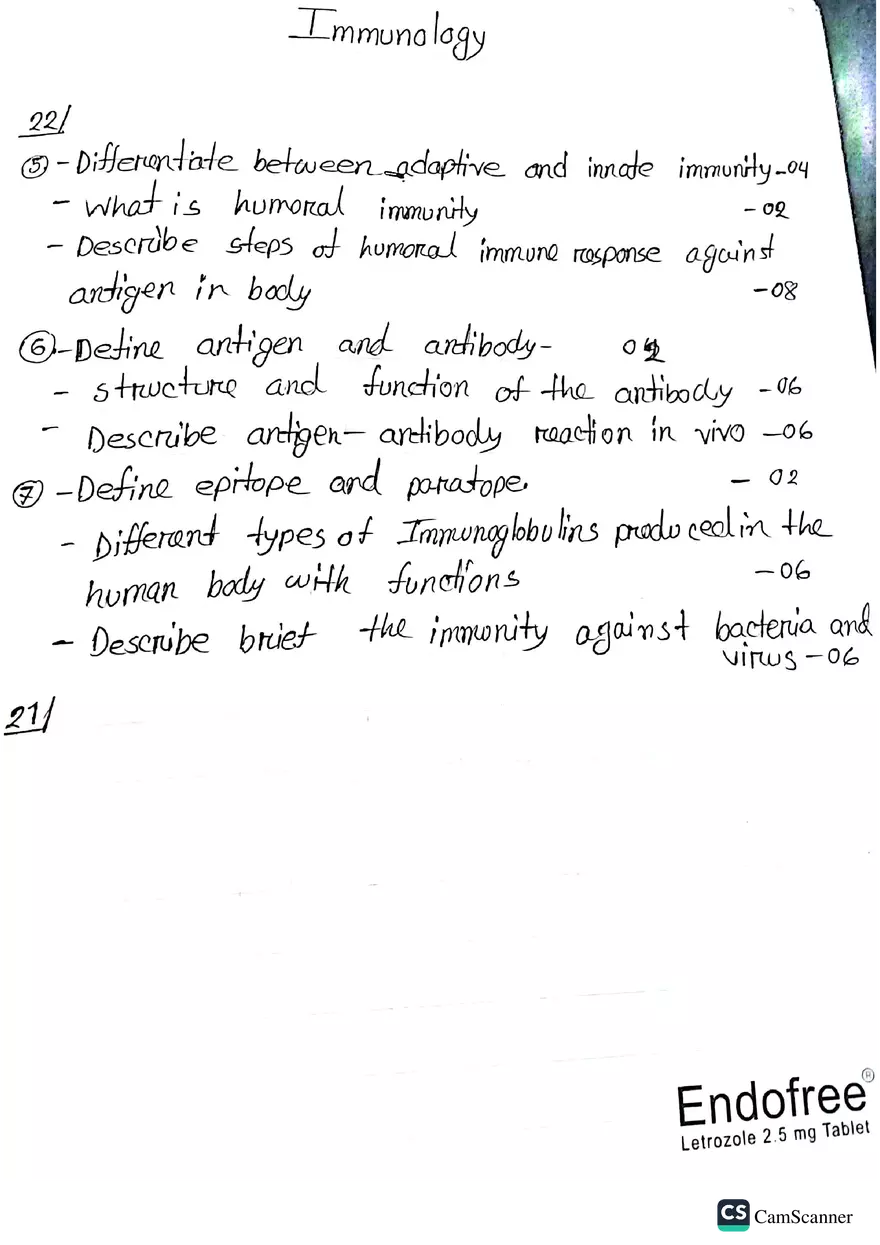 Immunology
22/
⑤ - Differentiate between adaptive and innate immunity - 04
- What is humoral immunity - 02
- Describe steps of humoral immune response against
antigen in body - 08
⑥ - Define antigen and antibody -
- structure and function of the antibody - 06
- Describe antigen - antibody reaction in vivo - 06
⑦ - Define epitope and paratope. - 02
- Different types of Immunoglobulins produced in the
human body with functions - 06
- Describe brief the immunity against bacteria and
virus - 06
21/
Endofree®
Letrozole 2.5 mg Tablet
CS CamScanner